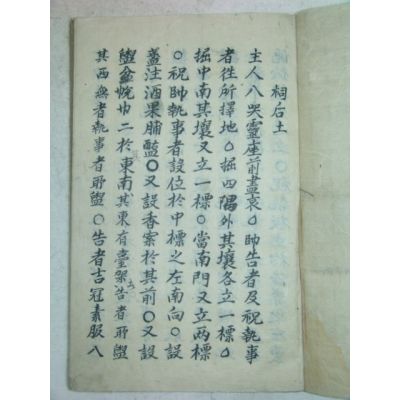 祠后土
主人入哭靈座前盡哀○帥告者及祝執事
者往所擇地○掘四隅外其壤各立一標○
掘中南其壤又立一標○當南門又立兩標
○祝帥執事者設位於中標之左南向○設
盞注酒果脯醢○又設香案於其前○又設
盥盆帨巾二於東南其東有臺架告者所盥
其西無者執事者所盥○告者吉冠素服入